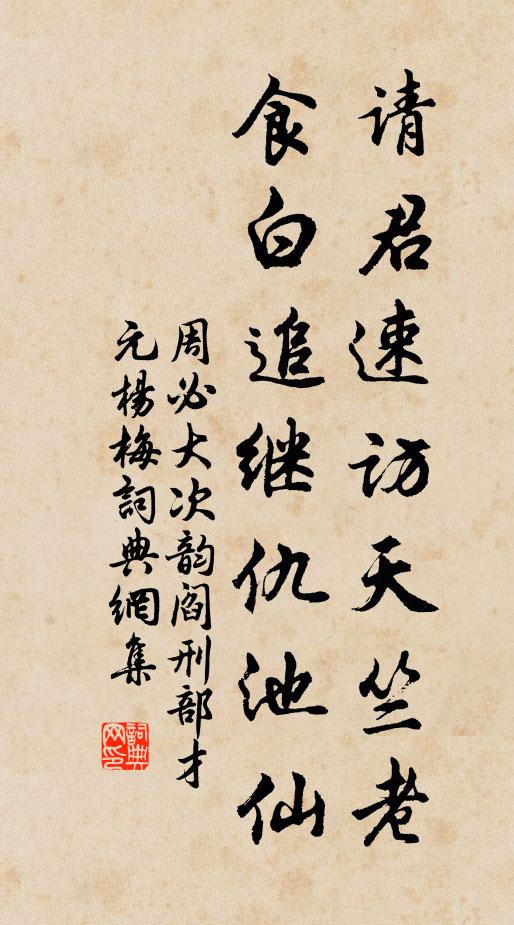 请君速访天竺老
食白追继仇池仙
周必大次韵阎刑部才
元楊梅詞典網集
詞典网印